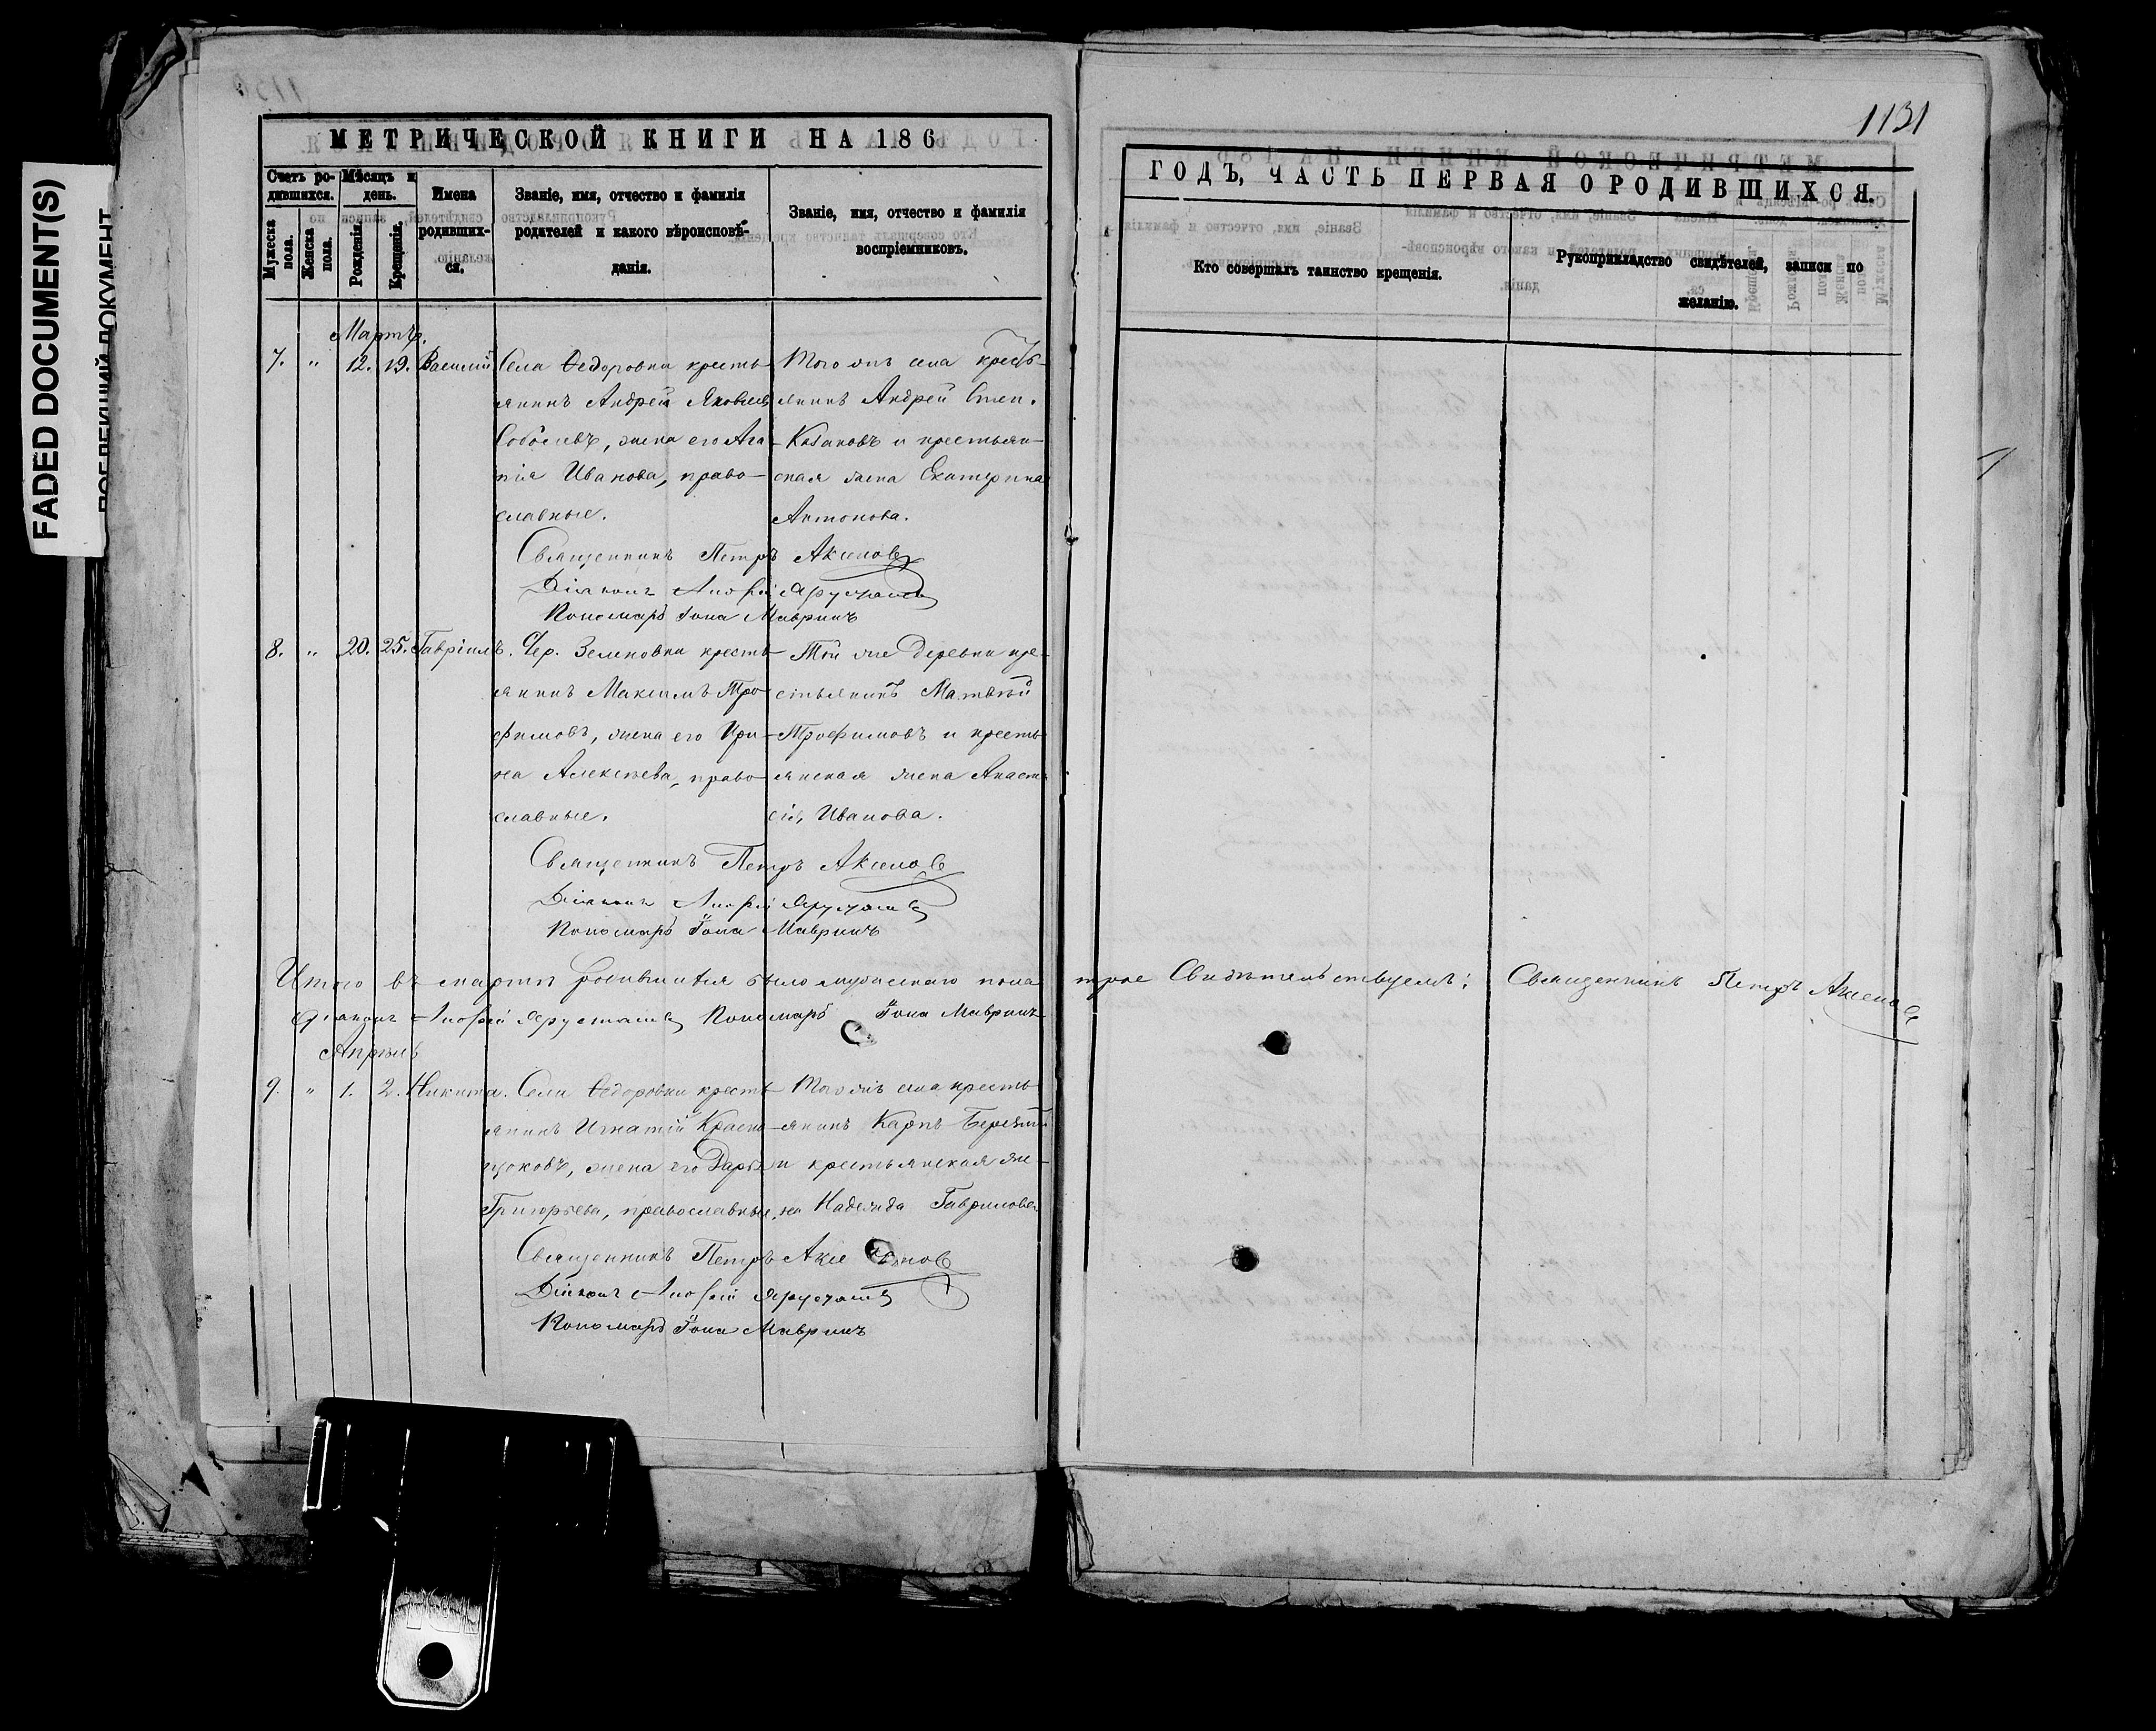 FADED DOCUMENT(S)
1131
МЕТРИЧЕСКОЙ КНИГИ НА 186
ГОДЪ, ЧАСТЬ ПЕРВАЯ О РОДИВШИХСЯ.
Счетъ родившихся.
Мужеска пола.
Женска пола.
Мѣсяцъ и день.
Рожденія.
Крещенія.
Имена родившихся.
Званіе, имя, отчество и фамилія
родителей и какого вѣроисповѣ-
данія.
Званіе, имя, отчество и фамилія
воспріемниковъ.
Кто совершалъ таинство крещенія.
Рукоприкладство свидѣтелей, записи по
желанію.
Мартъ.
7. „ 12. 19. Василий
Села Ѳедоровки кресть-
янинъ Андрей Яковлев
Соболевъ, жена его Ага-
пія Иванова, право-
славные.
Того жъ села кресть-
янинъ Андрей Степ.
Казаковъ и крестьян-
ская жена Екатерина
Антонова.
Священникъ Петръ Аксенов
Діаконъ
Пономарь Іона Мавринъ
8. „ 20. 25. Гавріилъ.
Дер. Зеленовки кресть-
янинъ Максимъ Тро-
фимовъ, жена его Ири-
на Алексѣева, право-
славные.
Той же деревни кре-
стьянинъ Матвѣй
Трофимовъ и кресть-
янская жена Анаста-
сія Иванова.
Священникъ Петръ Аксенов
Діаконъ
Пономарь Іона Мавринъ
Итого въ мартѣ родившихся было мужескаго пола трое Свидѣтельствуемъ: Священникъ Петръ Аксенов
Діаконъ Пономарь Іона Мавринъ
Апрѣль
9. „ 1. 2. Никита.
Села Ѳедоровки кресть-
янинъ Игнатій Красно-
щоковъ, жена его Дарья
Григорьева, православные.
Того жъ села кресть-
янинъ Карпъ
и крестьянская же-
на Надежда Гаврилова
Священникъ Петръ Аксенов
Діаконъ
Пономарь Іона Мавринъ